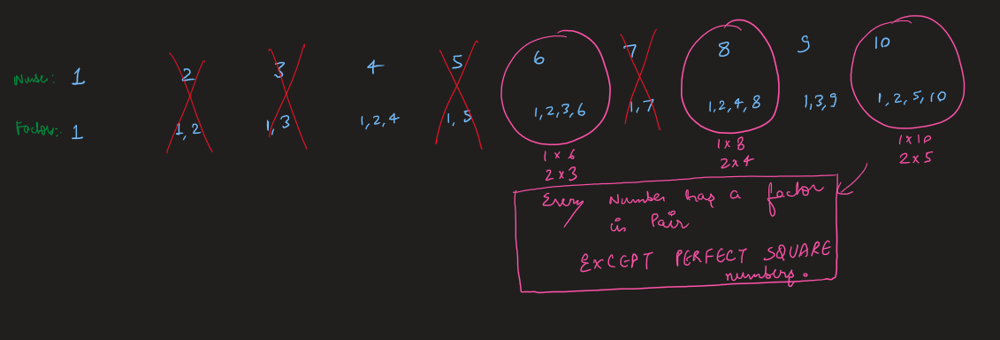 Nuse: 1 2 3 4 5 6 7 8 9 10
Factor: 1 1,2 1,3 1,2,4 1,5 1,2,3,6 1,7 1,2,4,8 1,3,9 1,2,5,10
1×6 1×8 1×10
2×3 2×4 2×5
Every Number has a factor
in Pair
EXCEPT PERFECT SQUARE
numbers.